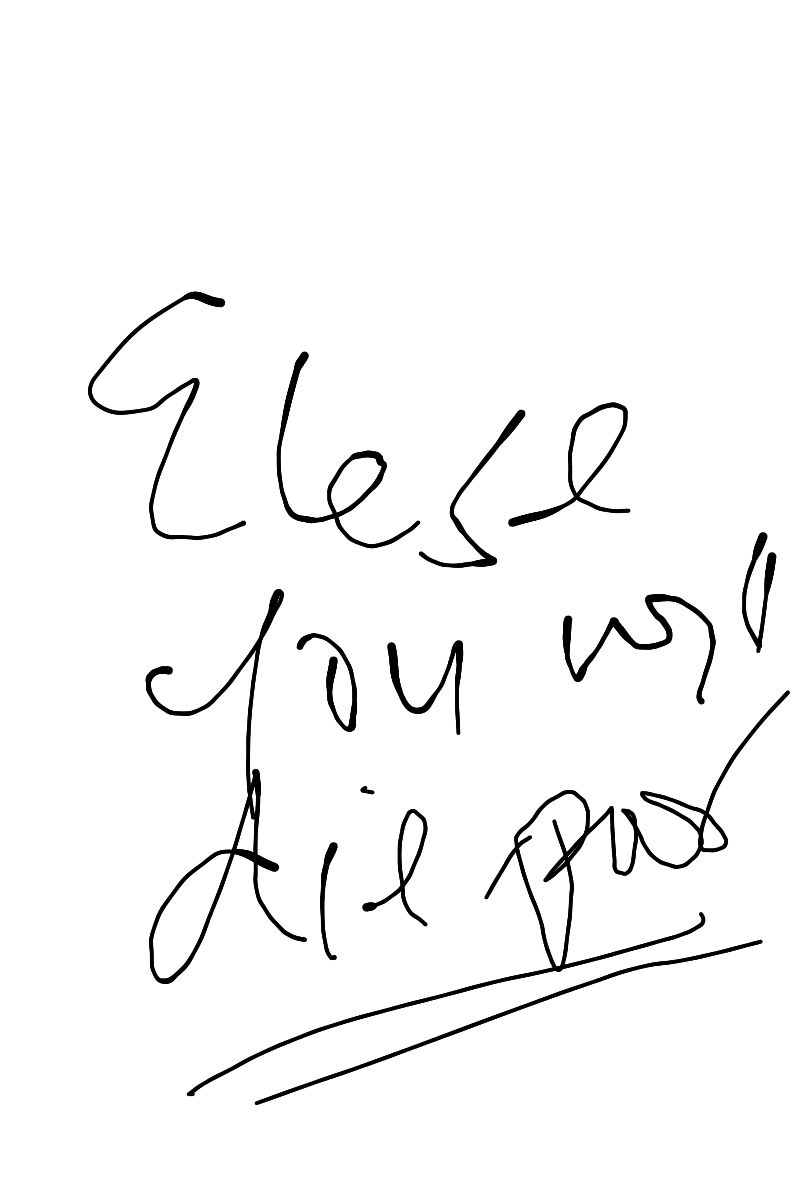 Elese
you will
die poor